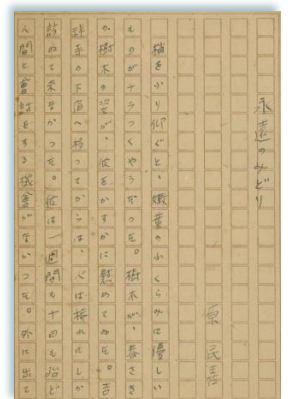 永遠のみどり
原民喜
梢をふり仰ぐと、嫩葉のふくらみに優しい
ものがチラつくやうだつた。樹木が、春さき
の樹木の姿が、彼をかすかに慰めてゐた。吉
祥寺の下宿へ移つてからは、人は稀れにしか
訪ねて来なかつた。彼は一週間も十日も殆ど
人間と會話をする機會がなかつた。外に出て